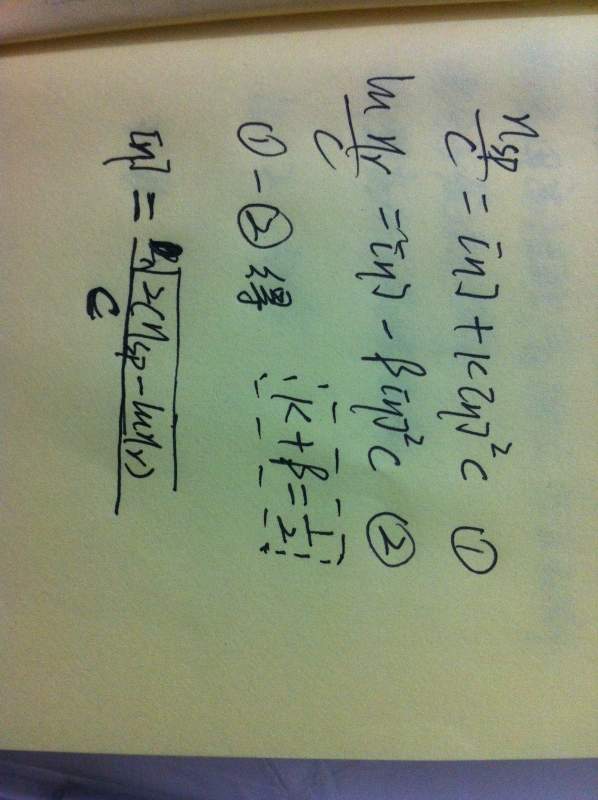 ηsp/C = [η] + K[η]²C ①
lnηr/C = [η] - β[η]²C ②
① - ② 得 K + β = 1/2
[η] = √2(ηsp - lnηr) / C